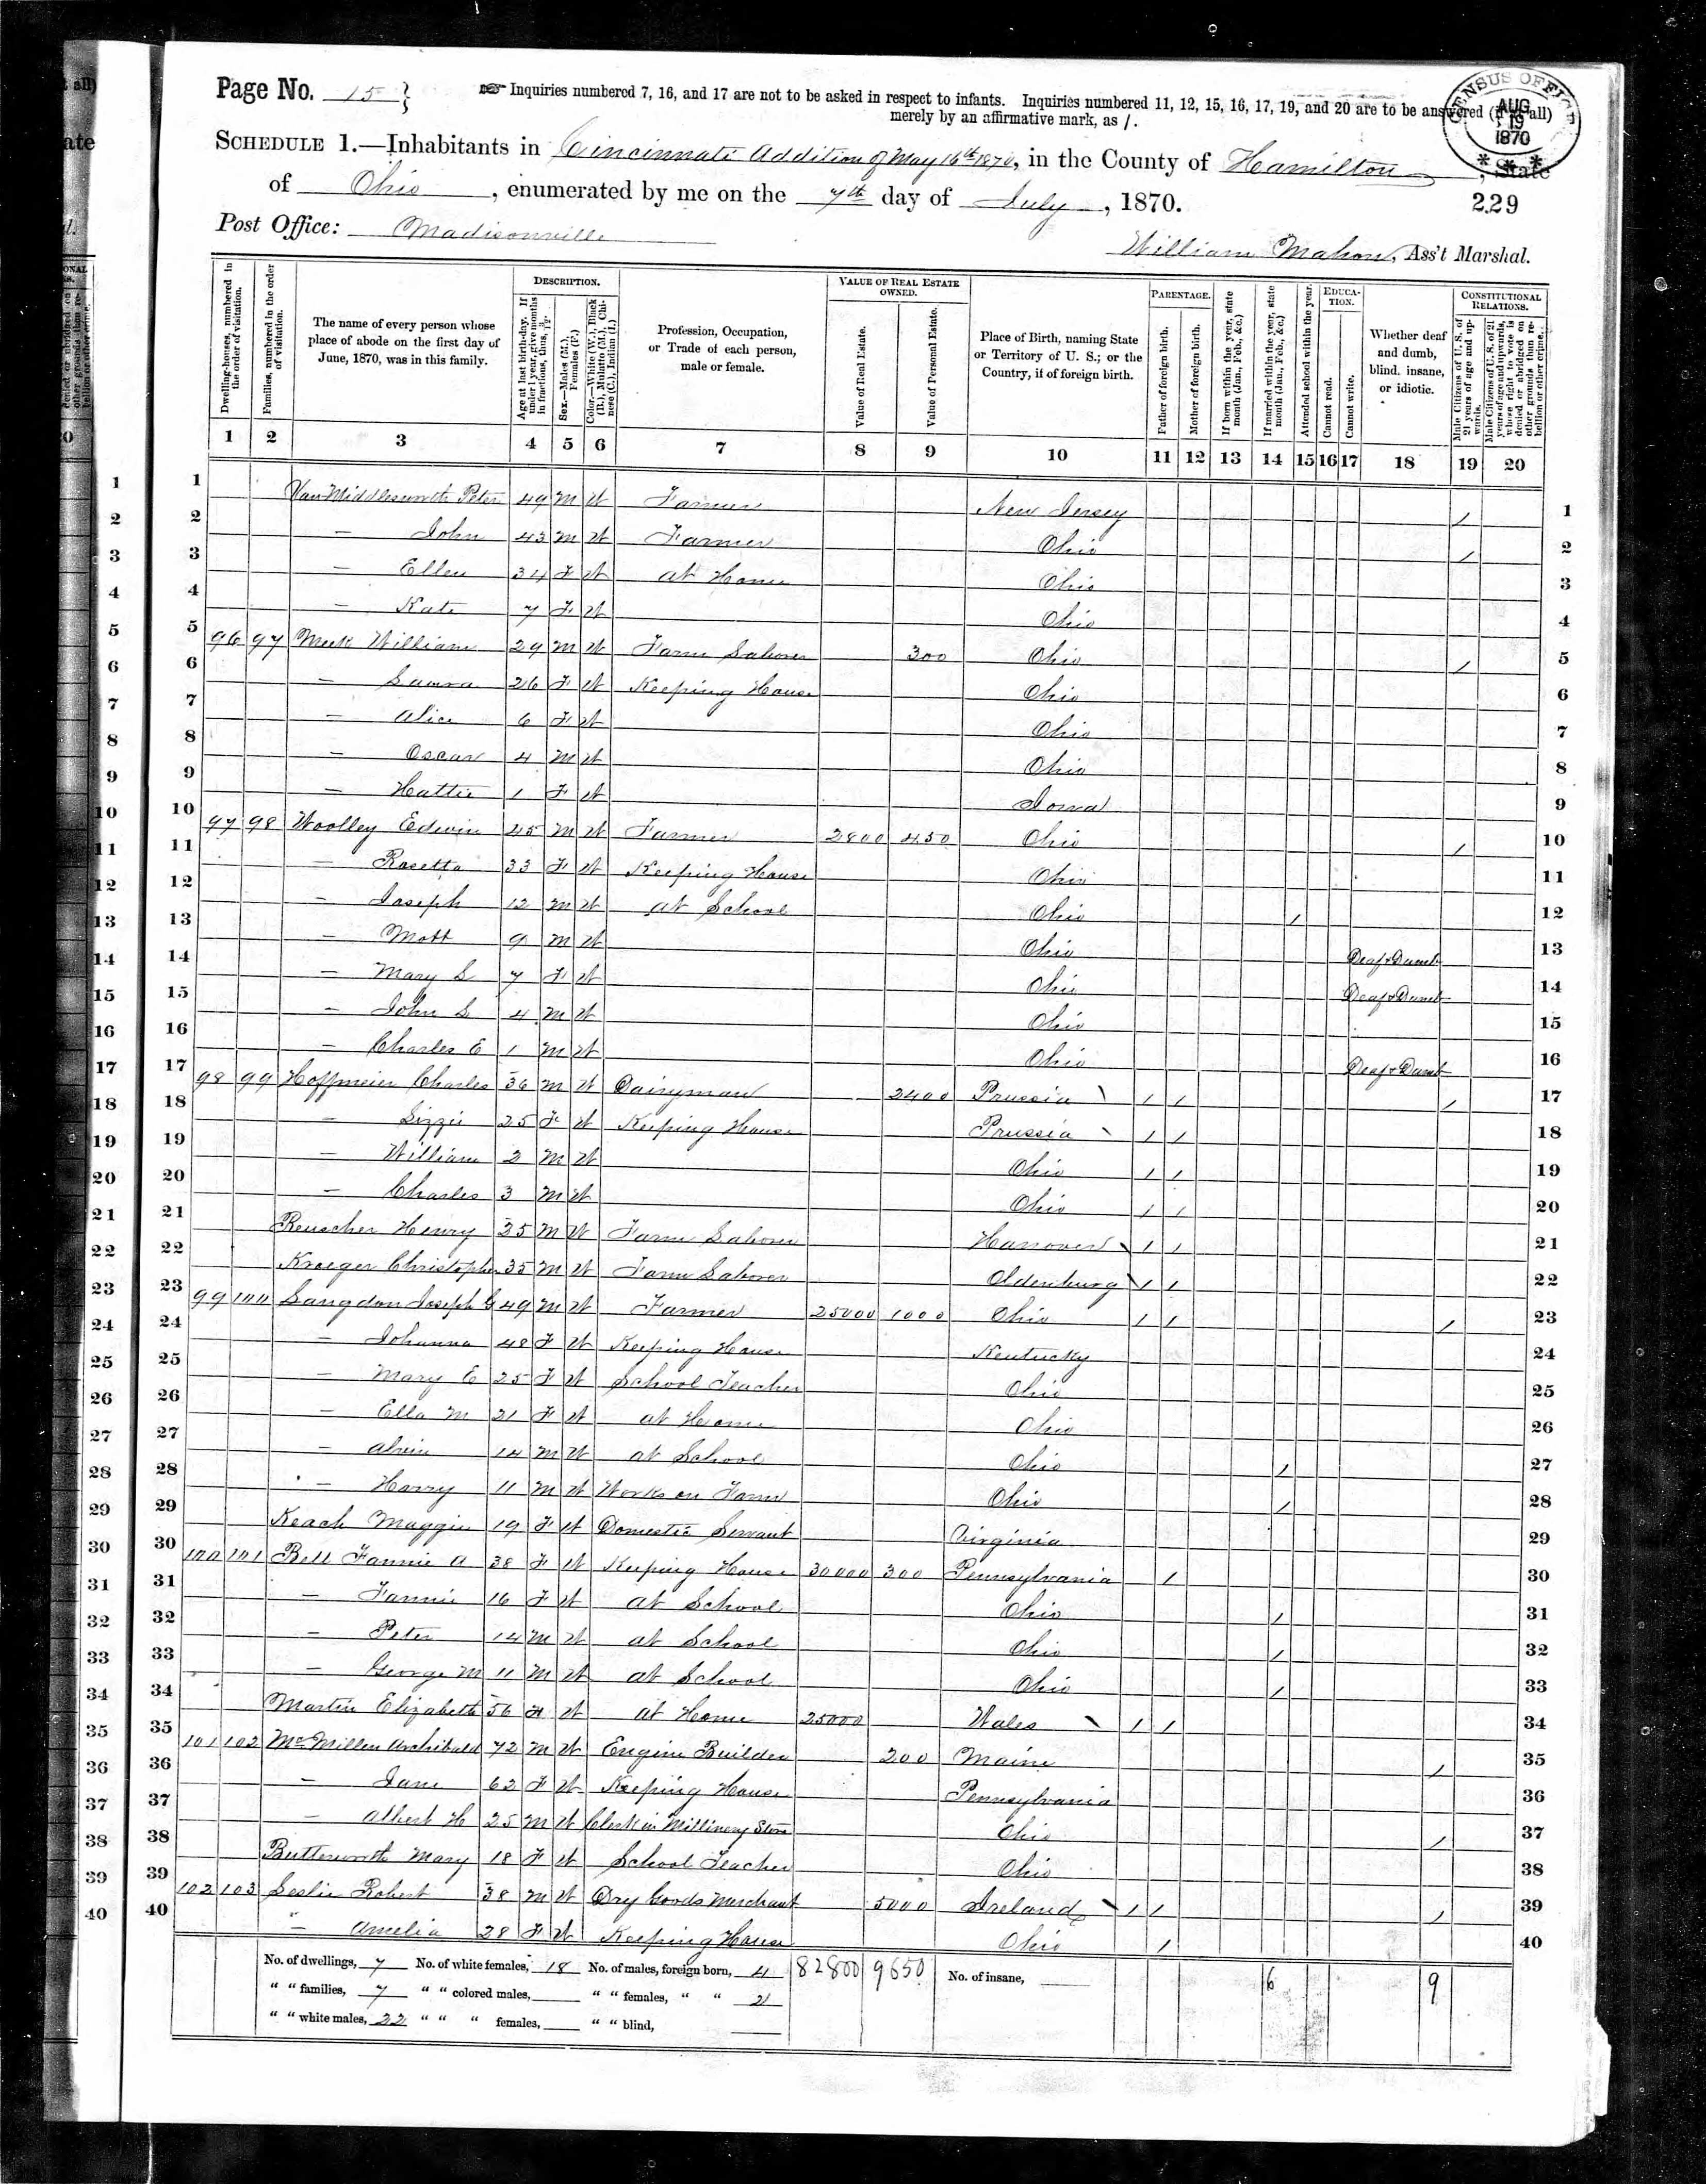 Page No. 15
Inquiries numbered 7, 16, and 17 are not to be asked in respect to infants. Inquiries numbered 11, 12, 15, 16, 17, 19, and 20 are to be answered (if at all)
merely by an affirmative mark, as /.
CENSUS OFFICE AUG 19 1870
SCHEDULE 1.—Inhabitants in Cincinnati Addition of May 16th 1870, in the County of Hamilton, State
of Ohio, enumerated by me on the 7th day of July, 1870.
229
Post Office: Madisonville
William Mahon, Ass't Marshal.
Dwelling-houses, numbered in the order of visitation.
Families, numbered in the order of visitation.
The name of every person whose place of abode on the first day of June, 1870, was in this family.
DESCRIPTION.
Age at last birth-day. If under 1 year, give months in fractions, thus, 3/12.
Sex.—Males (M.), Females (F.)
Color.—White (W.), Black (B.), Mulatto (M.), Chinese (C.), Indian (I.)
Profession, Occupation, or Trade of each person, male or female.
VALUE OF REAL ESTATE OWNED.
Value of Real Estate.
Value of Personal Estate.
Place of Birth, naming State or Territory of U. S.; or the Country, if of foreign birth.
PARENTAGE.
Father of foreign birth.
Mother of foreign birth.
If born within the year, state month (Jan., Feb., &c.)
If married within the year, state month (Jan., Feb., &c.)
Attended school within the year.
EDUCATION.
Cannot read.
Cannot write.
Whether deaf and dumb, blind, insane, or idiotic.
CONSTITUTIONAL RELATIONS.
Male Citizens of U. S. of 21 years of age and upwards.
Male Citizens of U. S. of 21 years of age and upwards, whose right to vote is denied or abridged on other grounds than rebellion or other crime.
1 2 3 4 5 6 7 8 9 10 11 12 13 14 15 16 17 18 19 20
1 Van Middlesworth Peter 49 M W Farmer New Jersey / 1
2 — John 43 M W Farmer Ohio / 2
3 — Ellen 34 F W at Home Ohio 3
4 — Kate 7 F W Ohio 4
5 96 97 Meek William 29 M W Farm Laborer 300 Ohio / 5
6 — Laura 26 F W Keeping House Ohio 6
7 — Alice 6 F W Ohio 7
8 — Oscar 4 M W Ohio 8
9 — Hattie 1 F W Iowa 9
10 97 98 Woolley Edwin 45 M W Farmer 2800 450 Ohio / 10
11 — Rosetta 33 F W Keeping House Ohio 11
12 — Joseph 12 M W at School Ohio / 12
13 — Mott 9 M W Ohio Deaf & Dumb 13
14 — Mary L 7 F W Ohio Deaf & Dumb 14
15 — John L 4 M W Ohio 15
16 — Charles E 1 M W Ohio Deaf & Dumb 16
17 98 99 Hoffmeier Charles 36 M W Dairyman 2400 Prussia / / / 17
18 — Lizzie 25 F W Keeping House Prussia / / 18
19 — William 2 M W Ohio / / 19
20 — Charles 3 M W Ohio / / 20
21 Reuscher Henry 35 M W Farm Laborer Hanover / / 21
22 Kroeger Christopher 35 M W Farm Laborer Oldenburg / / 22
23 99 100 Langdon Joseph G 49 M W Farmer 25000 1000 Ohio / / / 23
24 — Johanna 48 F W Keeping House Kentucky 24
25 — Mary E 25 F W School Teacher Ohio 25
26 — Ella M 21 F W at Home Ohio 26
27 — Alvin 14 M W at School Ohio / 27
28 — Harry 11 M W Works on Farm Ohio / 28
29 Keach Maggie 19 F W Domestic Servant Virginia 29
30 100 101 Bell Fannie A 38 F W Keeping House 30000 300 Pennsylvania / 30
31 — Fannie 16 F W at School Ohio / 31
32 — Peter 14 M W at School Ohio / 32
33 — George M 11 M W at School Ohio / 33
34 Martin Elizabeth 56 F W at Home 25000 Wales / / 34
35 101 102 McMillen Archibald 72 M W Engine Builder 200 Maine / 35
36 — Jane 62 F W Keeping House Pennsylvania 36
37 — Albert H 25 M W Clerk in Millinery Store Ohio / 37
38 Butterworth Mary 18 F W School Teacher Ohio 38
39 102 103 Leslie Robert 38 M W Dry Goods Merchant 5000 Ireland / / / 39
40 — Amelia 28 F W Keeping House Ohio / 40
No. of dwellings, 7 No. of white females, 18 No. of males, foreign born, 4 82800 9650 No. of insane, 6 9
" " families, 7 " " colored males, " " females, " " 2
" " white males, 22 " " " females, " " blind,